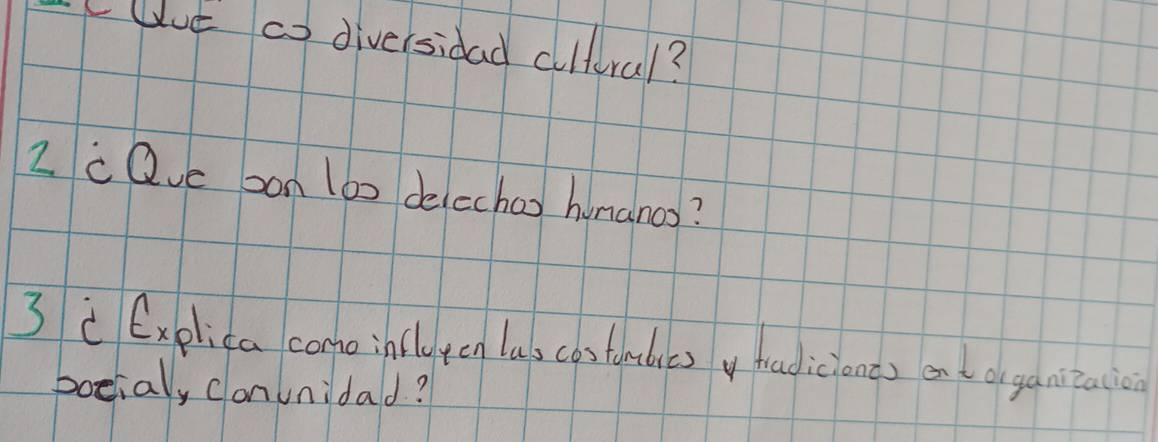 ¿Que es diversidad cultural?
2 ¿Que son los derechos humanos?
3 ¿Explica como influyen las costumbres y tradiciones en organización
social y comunidad?